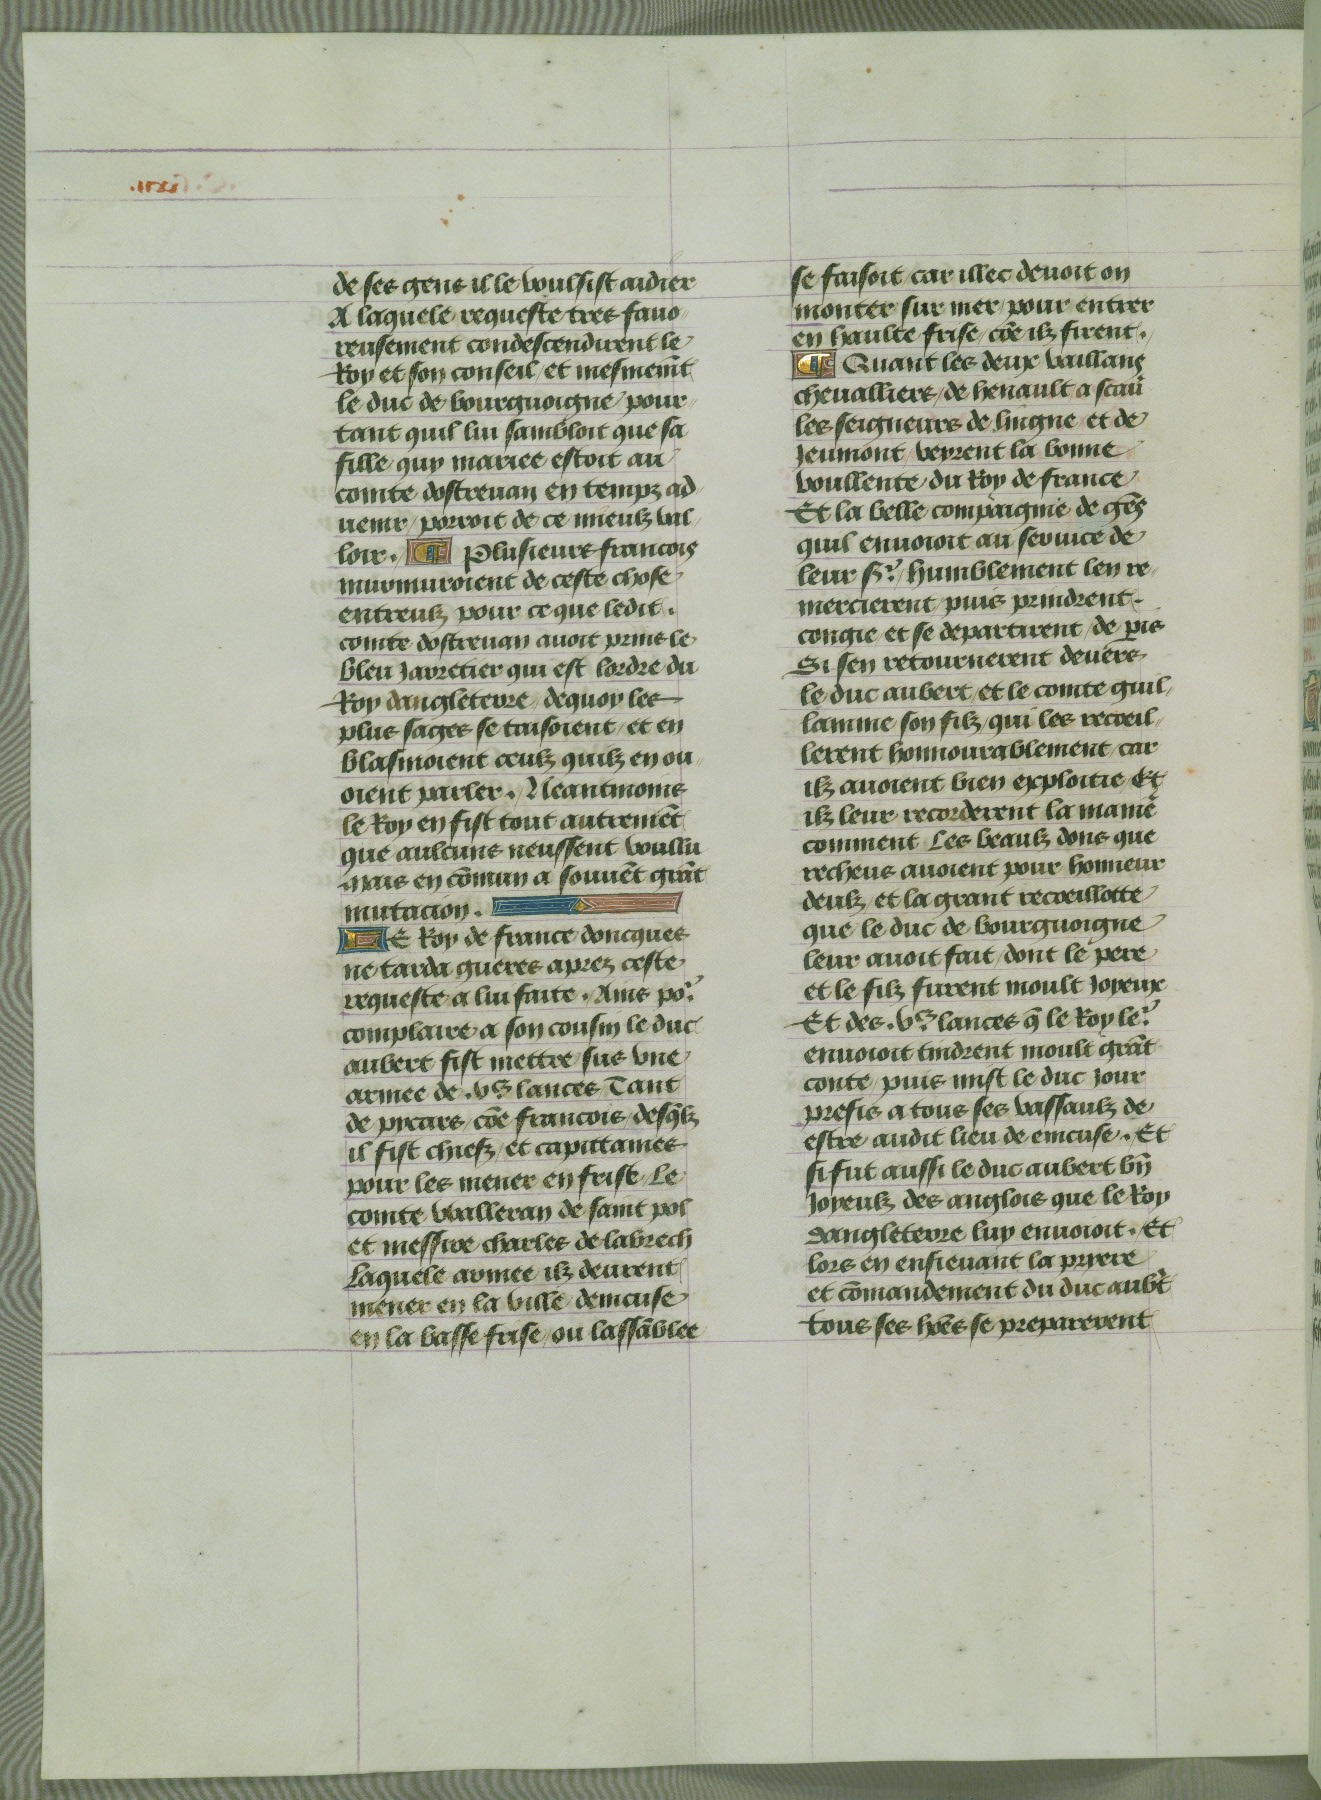 de ses gens il le voulsist aidier
A laquele requeste tres favo
reusement condescendirent le
Roy et son conseil / et mesmem̄t
le duc de bourguoigne / pour
tant quil lui sambloit que sa
fille / quy mariee estoit au
comte dostrevan en tempz ad
uenir / porroit de ce mieulz val
loir . ¶ Plusieurs francois
murmuroient de ceste chose
entreulz pour ce que ledit .
comte dostrevan avoit prins le
bleu Jarretier qui est lordre du
Roy dangleterre / dequoy les
plus sages se taisoient / et en
blasmoient ceulz quilz en ou
oient parler . Neantmoins
le Roy en fist tout autremēt
que aulcuns neussent voullu
mais en cōmun a souuēt grāt
mutacion .
LE Roy de france doncques
ne tarda gueres aprez ceste
requeste a lui faite . Ains po᷑
complaire a son cousin le duc
aubert fist mettre sus vne
armee de . vᶜ lances Tant
de pycars / cōe francois / desq̄lz
il fist chiefz / et capittaines
pour les mener en frise / Le
comte walleran de saint pol
et messire charles de labrech
Laquele armee ilz deurent
mener en la ville demcuse
en la basse frise / ou lassāblee
se faisoit car illec deuoit on
monter sur mer / pour entrer
en haulte frise / cōe ilz firent .
¶ Quant les deux vaillans
chevalliers / de henault a scau᷑
les seigneurs de lingne et de
Jeumont / veyrent la bonne
voullente du Roy de france
Et la belle compaignie de gēs
quil enuoioit au service de
leur s᷑ / humblement len re
mercierent puis prindrent .
congie et se departirent / de p̲is
Si sen retournerent devers
le duc aubert / et le comte guil
lamme son filz / qui les recoeil
lerent honnourablement / car
ilz avoient bien exploitie Et
ilz leur recorderent la maniē
comment Les beaulz dons que
recheus avoient pour honneur
deulz / et la grant recoeillotte
que le duc de bourguoigne
leur avoit fait / dont le pere
et le filz furent moult Joyeux
Et des . vᶜ lances q̄ le Roy le᷑
enuoioit tindrent moult grāt
conte / puis mist le duc Jour
prefis a tous ses vassaulz de
estre audit lieu de emcuse . Et
si fut aussi le duc aubert bn̄
Joyeulz des anglois que le Roy
dangleterre luy enuoioit . Et
lors en ensievant la pryere
et cōmandement du duc aub᷑t
tous ses hōes se preparerent